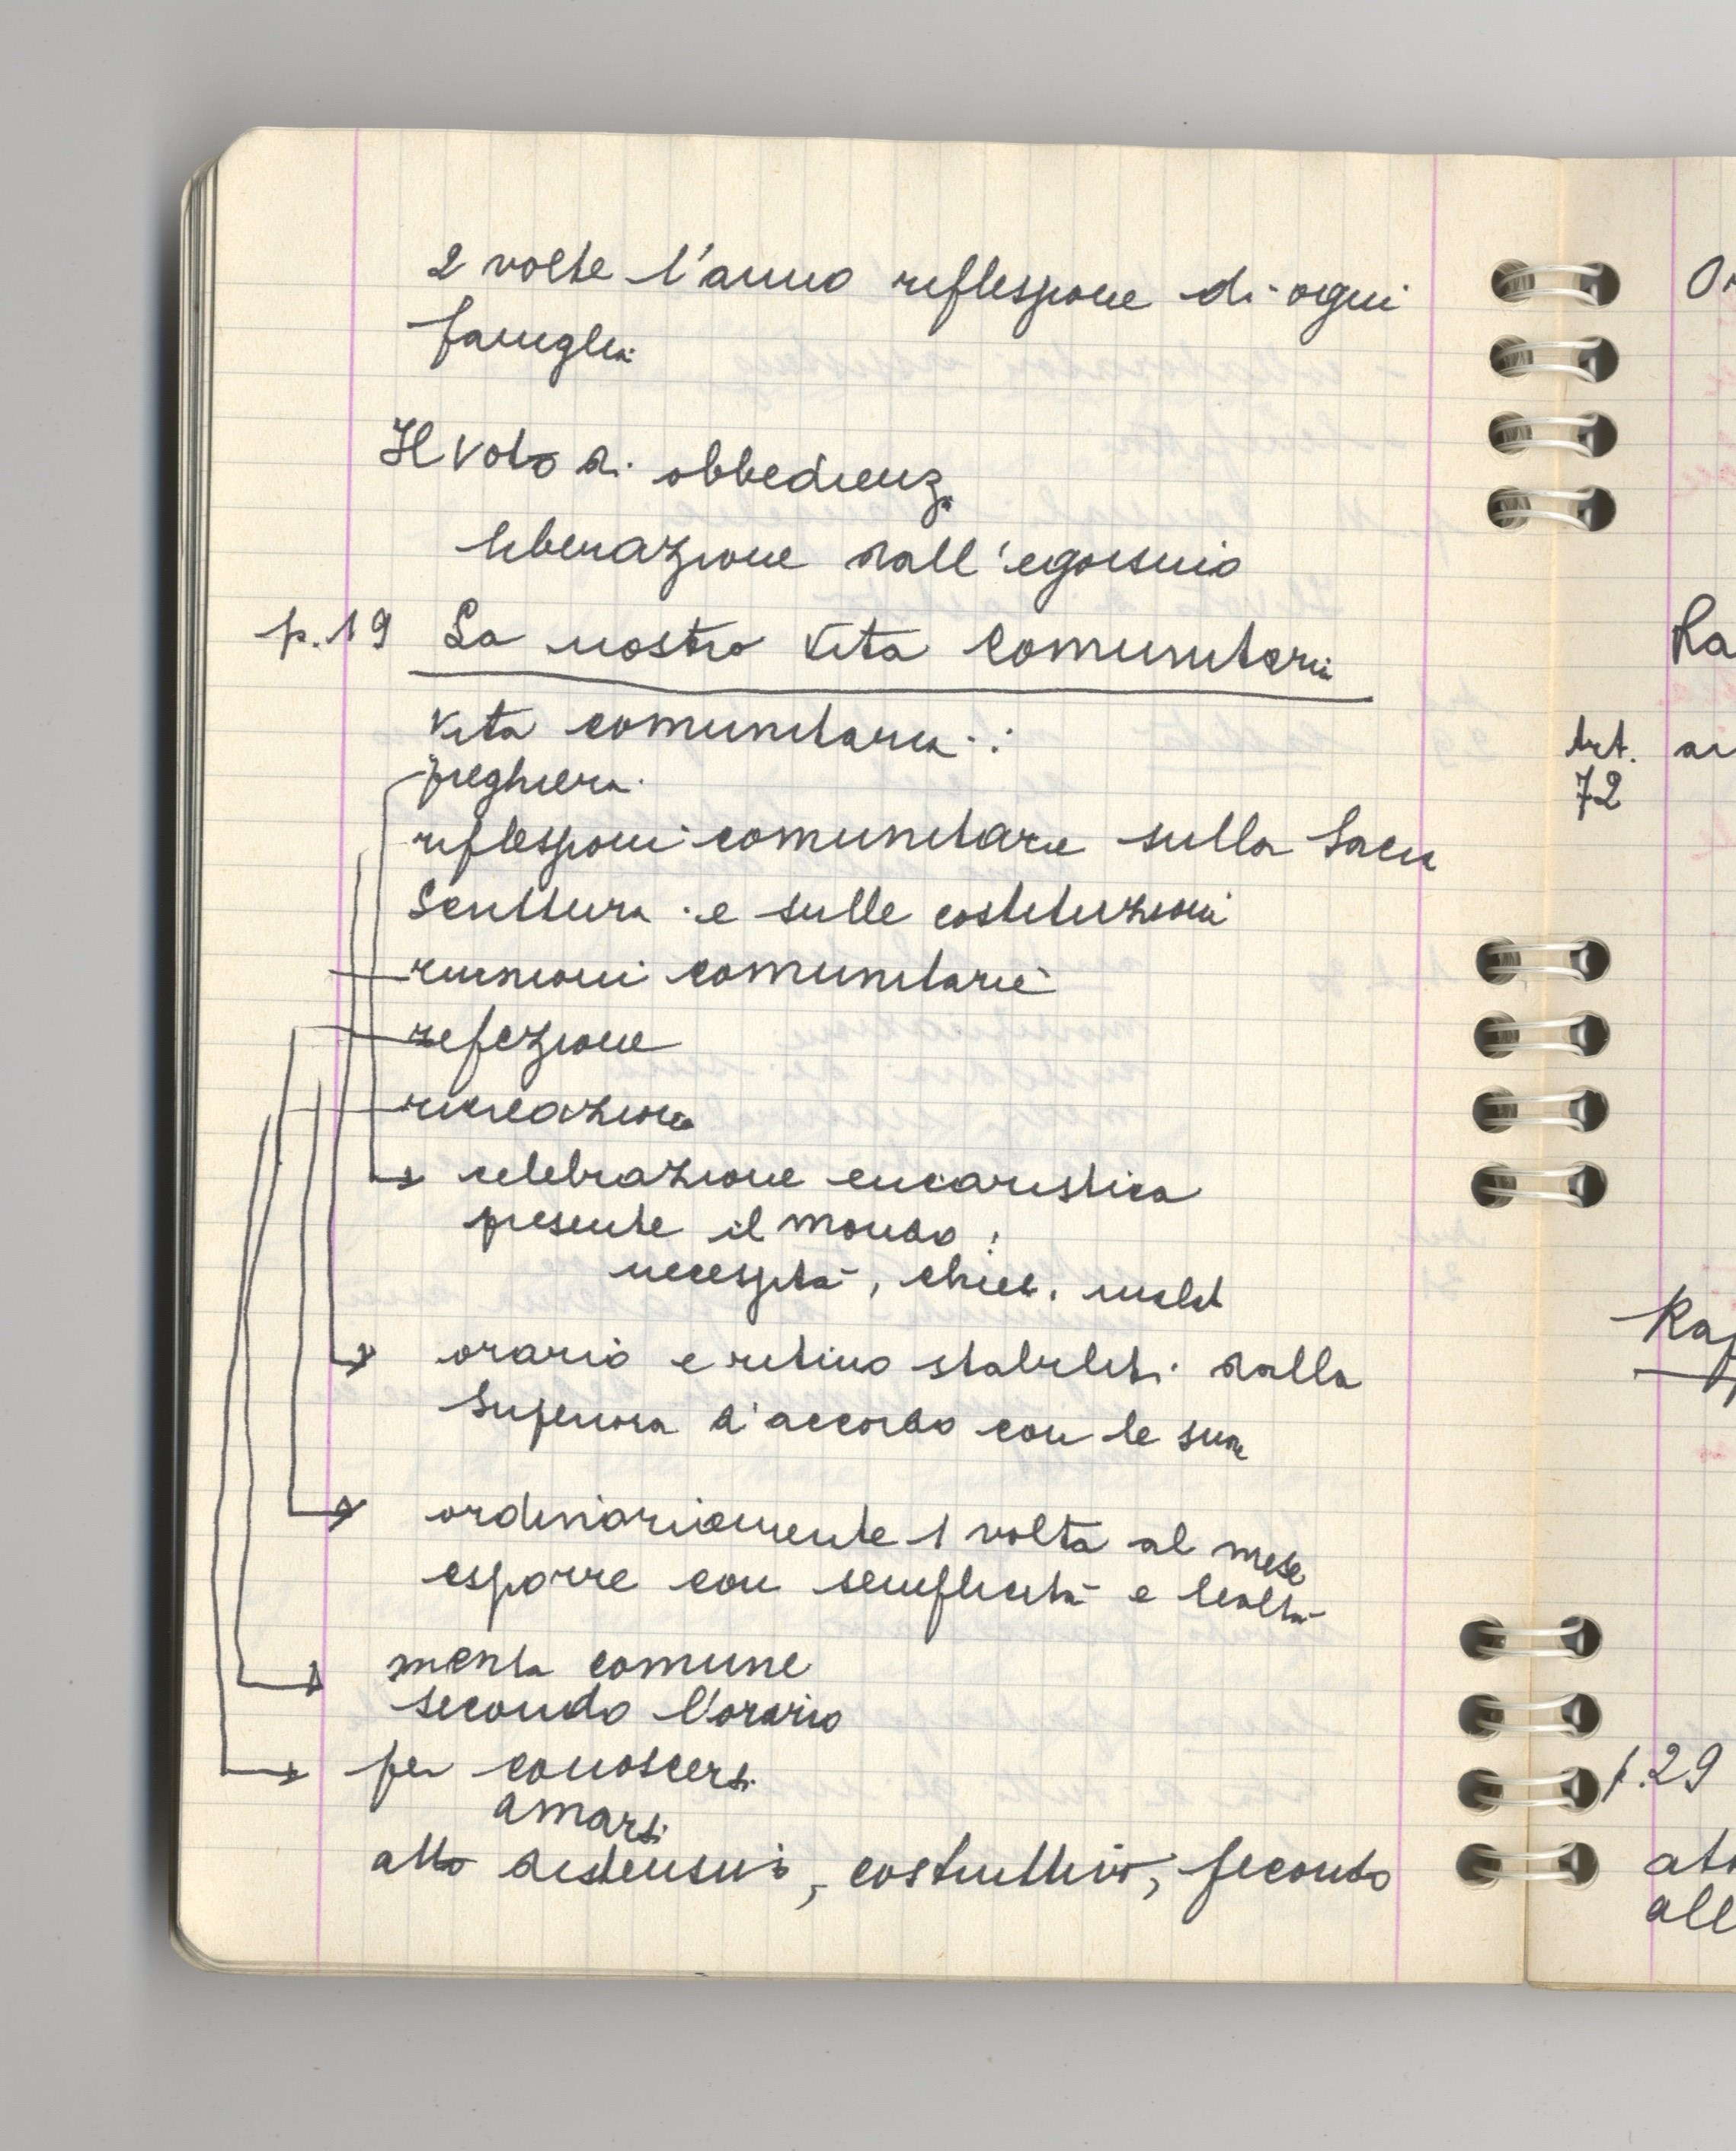 2 volte l'anno riflessione di ogni
famiglia
Il voto di obbedienza
liberazione dall'egoismo
p.19 La nostra vita comunitaria
vita comunitaria :
preghiera
riflessioni comunitarie sulla Sacra
Scrittura e sulle costituzioni
riunioni comunitarie
refezione
ricreazione
celebrazione eucaristica
presente il mondo :
necessità, chies. malat
orario e ritmo stabiliti dalla
Superiora d'accordo con le suore
ordinariamente 1 volta al mese
esporre con semplicità e lealtà
mensa comune
secondo l'orario
per conoscersi
amarsi
atto distensivo, costruttivo, fecondo
Ra
Art.
72
Rap
p.29
all